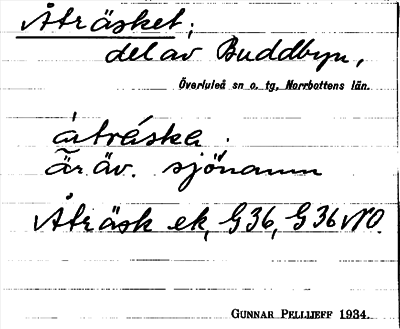 Åträsket;
del av Buddbyn,
Överluleå sn o. tg, Norrbottens län.
åtrǻska.
är äv. sjönamn
Åträsk ek, G36, G36 NO.
GUNNAR PELLIJEFF 1934.